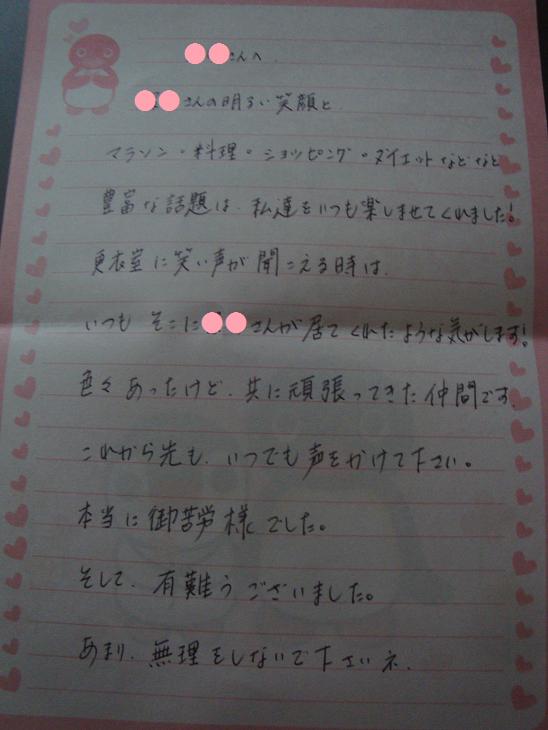 ●●さんへ
●●さんの明るい笑顔と
マラソン・料理・ショッピング・ダイエットなどなど
豊富な話題は、私達をいつも楽しませてくれました!
更衣室に笑い声が聞こえる時は、
いつも そこに●●さんが居てくれたような気がします!
色々あったけど、共に頑張ってきた仲間です。
これから先も、いつでも声をかけて下さい。
本当に御苦労様でした。
そして、有難うございました。
あまり、無理をしないで下さいネ.